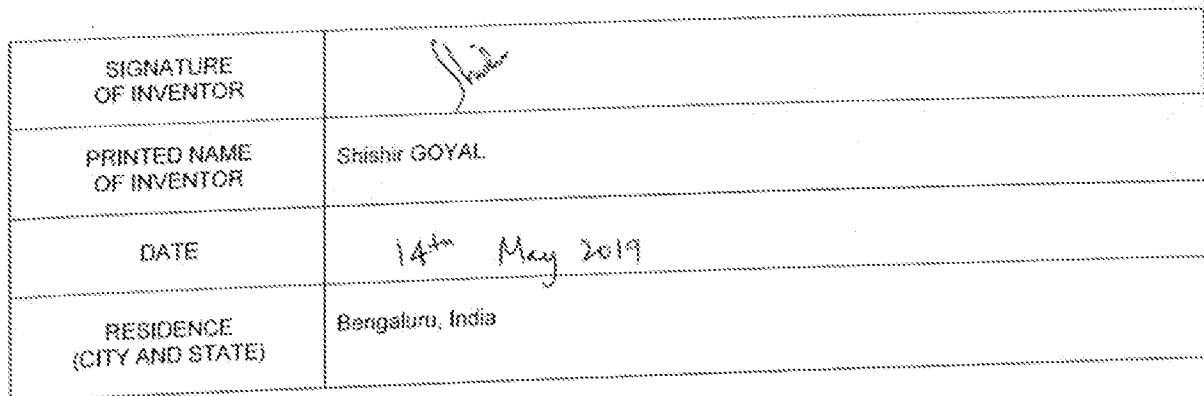 SIGNATURE
OF INVENTOR
PRINTED NAME
OF INVENTOR
Shishir GOYAL
DATE
14th May 2019
RESIDENCE
(CITY AND STATE)
Bengaluru, India